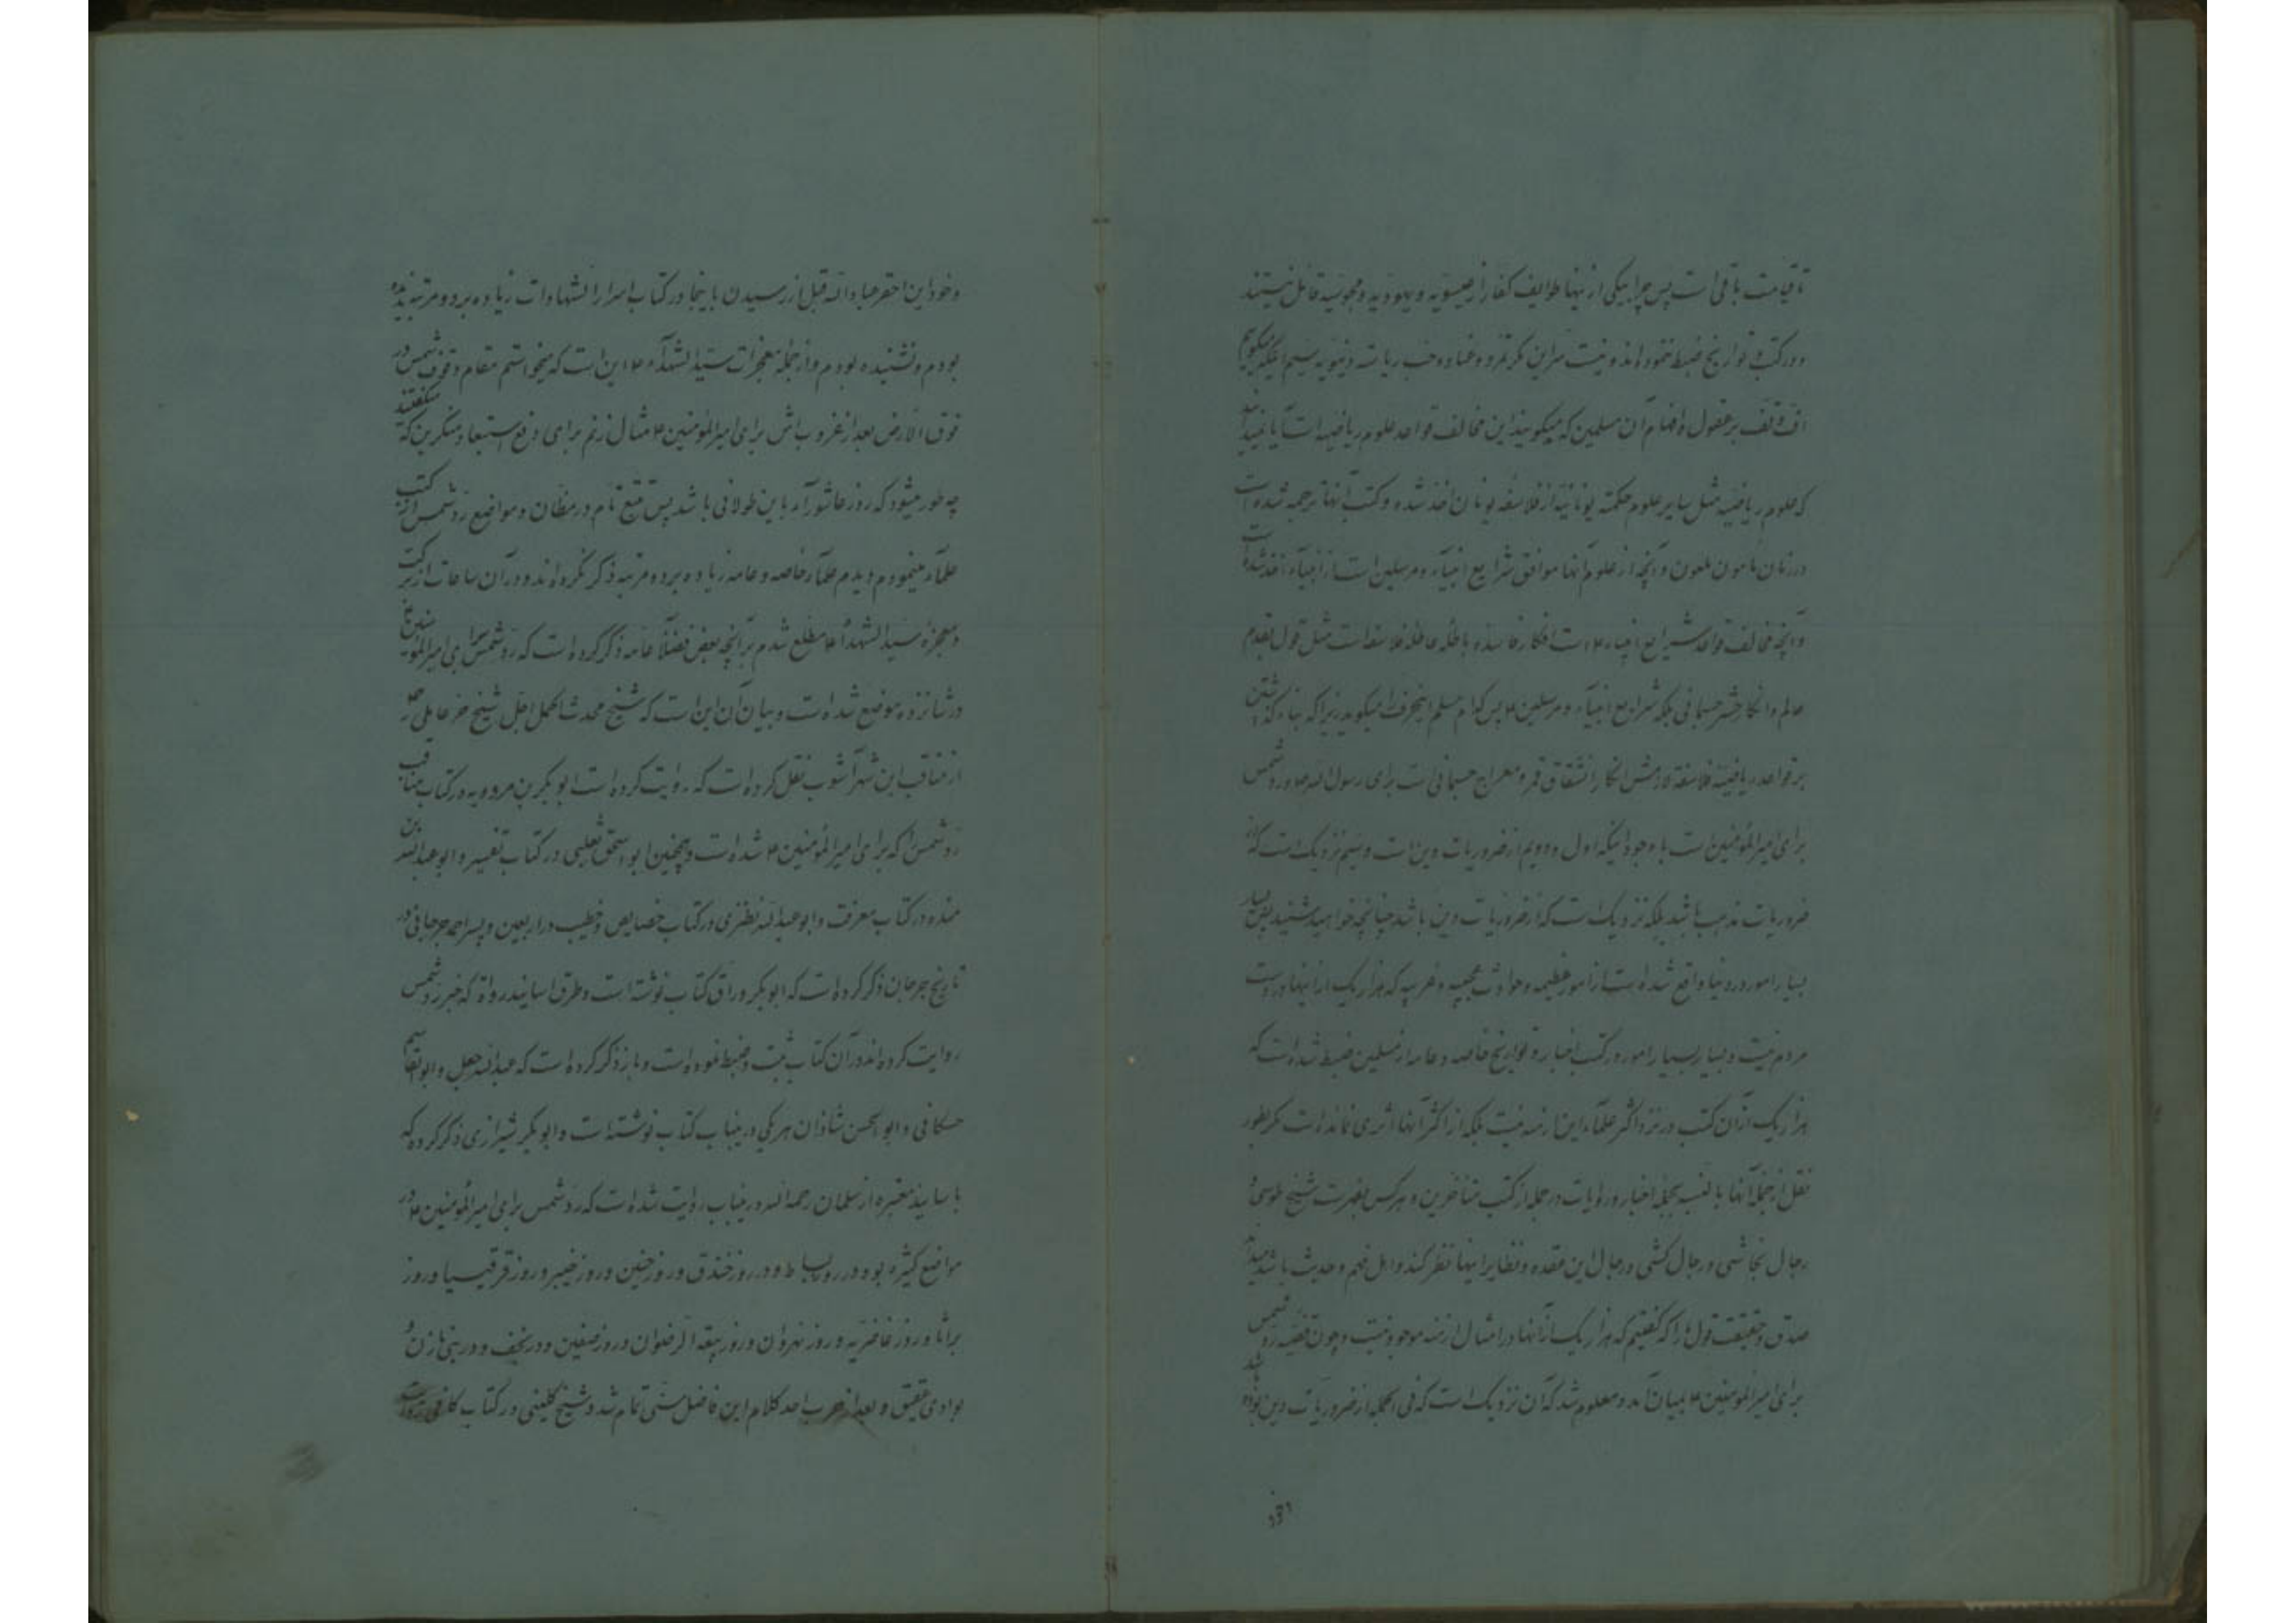 تا قیامت باقی است پس چرا یکی از اینها طوایف کفار از عیسویه و یهودیه و مجوسیه قائل نیستند
و در کتب و تواریخ ضبط ننموده‌اند و نیست سر این مگر تمرد و عناد و حب ریاسة دنیویه سیم اینکه میگویم
اف و تف بر عقول و افهام آن مسلمین که میگویند این مخالف قواعد علوم ریاضیه است آیا نمیدانند
که علوم ریاضیه مثل سایر علوم حکمته یونانیة از فلاسفه یونان اخذ شده و کتب آنها ترجمه شده است
در زمان مامون ملعون و آنچه از علوم آنها موافق شرایع انبیآء و مرسلین است از انبیآء اخذ شده است
و آنچه مخالف قواعد شرایع انبیاء ع است افکار فاسده باطله عاطله فلاسفه است مثل قول بقدم
عالم و انکار حشر جسمانی بلکه شرایع انبیآء و مرسلین ع پس کدام مسلم این حرف را میگوید زیرا که بناء گذاشتن
بر قواعد ریاضیة فلاسفة لازمش انکار انشقاق قمر و معراج جسمانی است برای رسول الله ص و رد شمس
برای امیرالمؤمنین است با وجود اینکه اول و دویم از ضروریات دین است و سیم نزدیک است که از
ضروریات مذهب باشد بلکه نزدیک است که از ضروریات دین باشد چنانچه خواهید شنید پس بسیار
بسیار امور در دنیا واقع شده است از امور عظیمه و حوادث عجیبه و غریبه که هزار یک از اینها در دست
مردم نیست و بسیار بسیار امور در کتب اخبار و تواریخ خاصه و عامه از مسلمین ضبط شده است که
هزار یک از آن کتب در نزد اکثر علمآء این ازمنه نیست بلکه از اکثر آنها اثری نمانده است مگر بطور
نقل از جمله آنها بالنسبه بجمله اخبار و روایات در جمله از کتب متأخرین و هرکس بفهرست شیخ طوسی و
رجال نجاشی و رجال کشی و رجال ابن عقده و نظایر اینها نظر کند و اهل فهم و حدیث باشد میداند
صدق و حقیقت قول ما را که گفتیم که هزار یک از آنها در امثال ازمنه موجود نیست و چون قضیه رد شمس
برای امیرالمؤمنین ع بمیان آمد و معلوم شد که آن نزدیک است که فی الجمله از ضروریات دین بوده باشد
و خود این احقر عباد الله قبل از رسیدن باینجا در کتاب اسرار الشهادات زیاده بر دو مرتبه ندیده
بودم و نشنیده بودم و از جمله معجزات سید الشهدآء ع این است که میخواستم مقام وقوف شمس در
فوق الارض بعد از غروب اش برای امیرالمؤمنین ع مثال زنم برای دفع استبعاد منکرین که میگفتند
چه طور میشود که روز عاشورآء باین طولانی باشد پس تتبع تام در مظان و مواضع رد شمس از کتب
علمآء مینمودم دیدم علمآء خاصه و عامه زیاده بر دو مرتبه ذکر نکرده‌اند و در آن ساعات از برکت
و معجزه سید الشهدآء ع مطلع شدم بر آنچه بعض فضلآء عامه ذکر کرده است که رد شمس برای امیرالمؤمنین ع
در شانزده موضع شده است و بیان آن این است که شیخ محمد شاگرد اجل شیخ حر عاملی ره
از مناقب ابن شهرآشوب نقل کرده است که روایت کرده است ابوبکر بن مردویه در کتاب مناقب
رد شمس را که برای امیرالمؤمنین ع شده است و همچنین ابو اسحق ثعلبی در کتاب تفسیر و ابو عبدالله بن
منده در کتاب معرفت و ابو عبدالله نطنزی در کتاب خصایص و خطیب در اربعین و پسر احمد جرجانی در
تاریخ جرجان ذکر کرده است که ابوبکر وراق کتاب نوشته است و طرق اسانید رواة که خبر رد شمس
روایت کرده‌اند در آن کتاب ثبت و ضبط نموده است و باز ذکر کرده است که عبدالله جعل و ابوالقاسم
حسکانی و ابوالحسن شاذان هر یکی در این باب کتاب نوشته است و ابوبکر شیرازی ذکر کرده که
با سانید معتبره از سلمان رحمه الله در این باب روایت شده است که رد شمس برای امیرالمؤمنین ع در
مواضع کثیره بوده در روز بساط و در روز خندق و روز حنین و روز خیبر و روز قرقیسیا و روز
براثا و روز غاضریه و روز نهروان و روز بیعة الرضوان و روز صفین و در نجف و در بنی مازن و
بوادی عقیق و بعد از حرب احد کلام این فاضل سنی تمام شد و شیخ کلینی در کتاب کافی